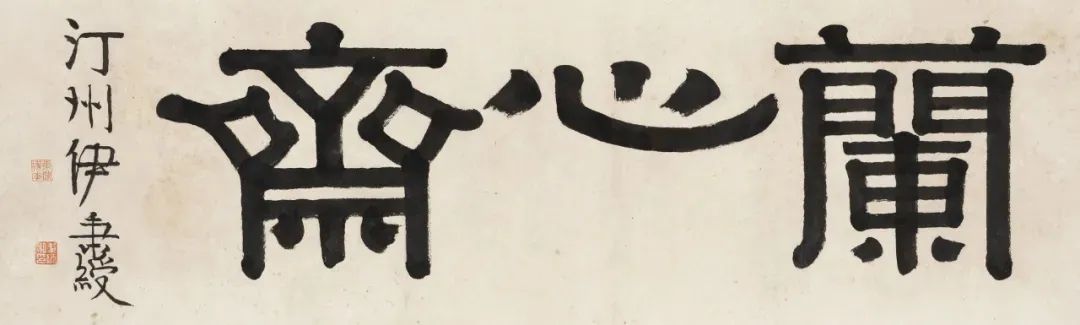 蘭心齋
汀州伊秉綬